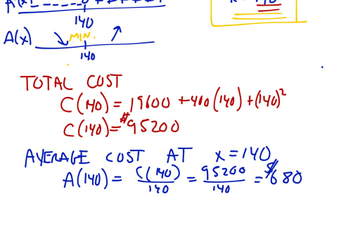 140
A(x) MIN.
140
TOTAL COST
C(140) = 19600 + 400(140) + (140)²
C(140) = $95200
AVERAGE COST AT x = 140
A(140) = C(140)/140 = 95200/140 = $680